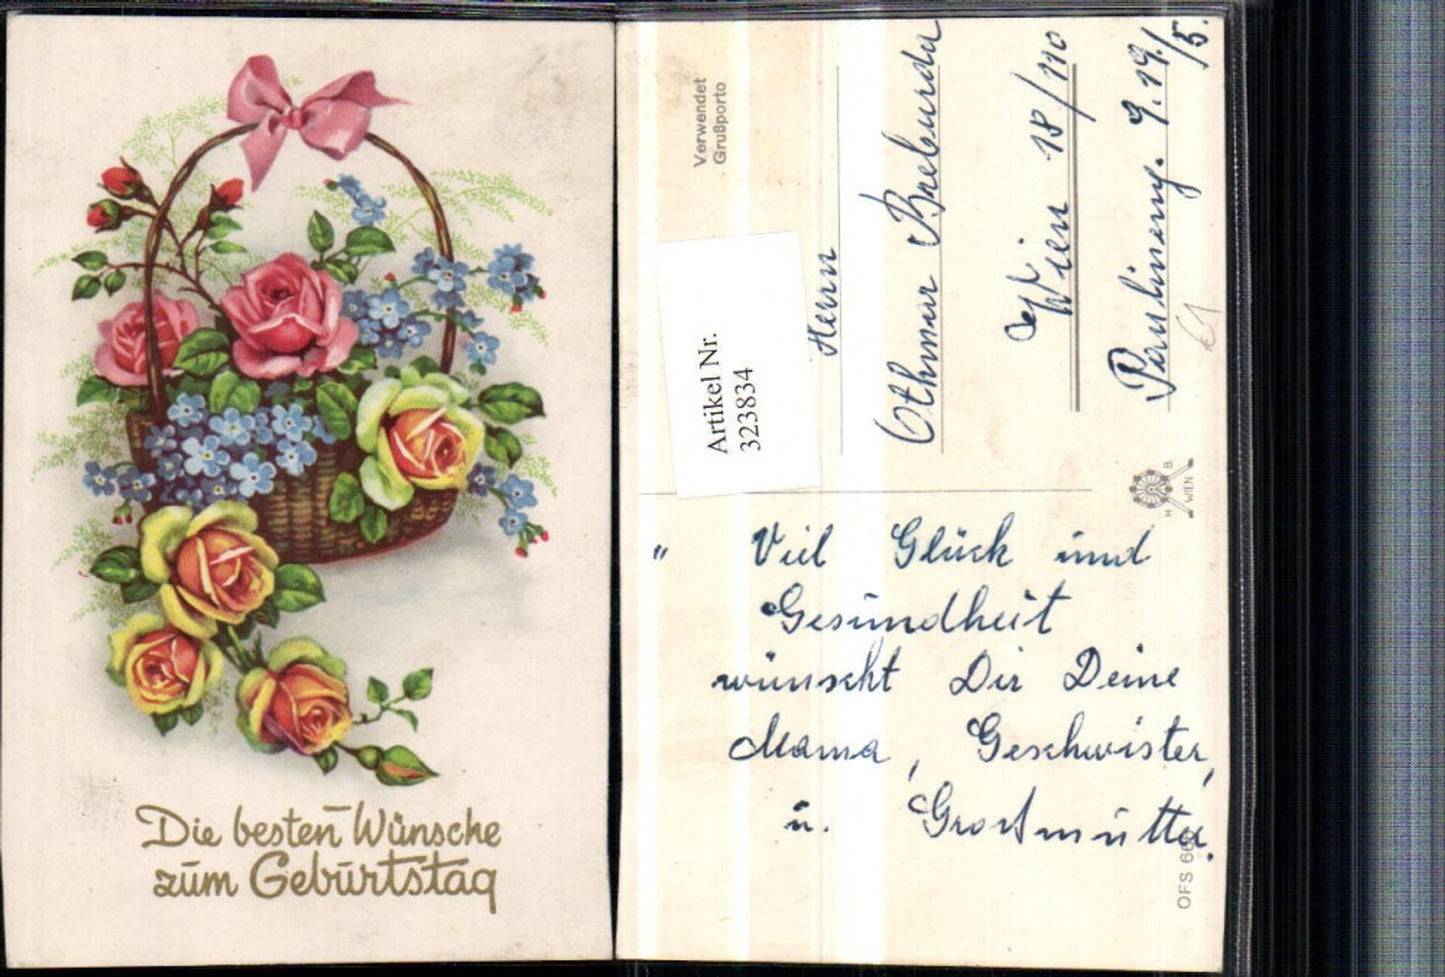 Die besten Wünsche
zum Geburtstag
Verwendet
Grußporto
Artikel Nr.
323834
Herrn
Othmar
Wien 18/110
Paulineng. 9.19/
5.
H B
WIEN
" Viel Glück und
Gesundheit
wünscht Dir Deine
Mama, Geschwister,
u. Grossmutter.
OFS